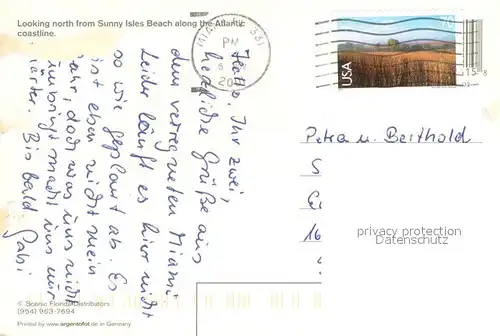 Looking north from Sunny Isles Beach along the Atlantic
coastline.
Hallo, Ihr zwei,
herzliche Grüße aus
dem verregneten Miami.
Leider läuft es hier nicht
so wie geplant ab. Es
ist eben nicht mein
Jahr, doch was uns nicht
umbringt macht uns nur
härter. Bis bald Gabi
© Scenic Florida Distributors
(954) 963-7694
Printed by www.argentofot.de in Germany
MIAMI 331
PM
20
USA
70
15
8
Petra u. Berthold
S
16
privacy protection
Datenschutz